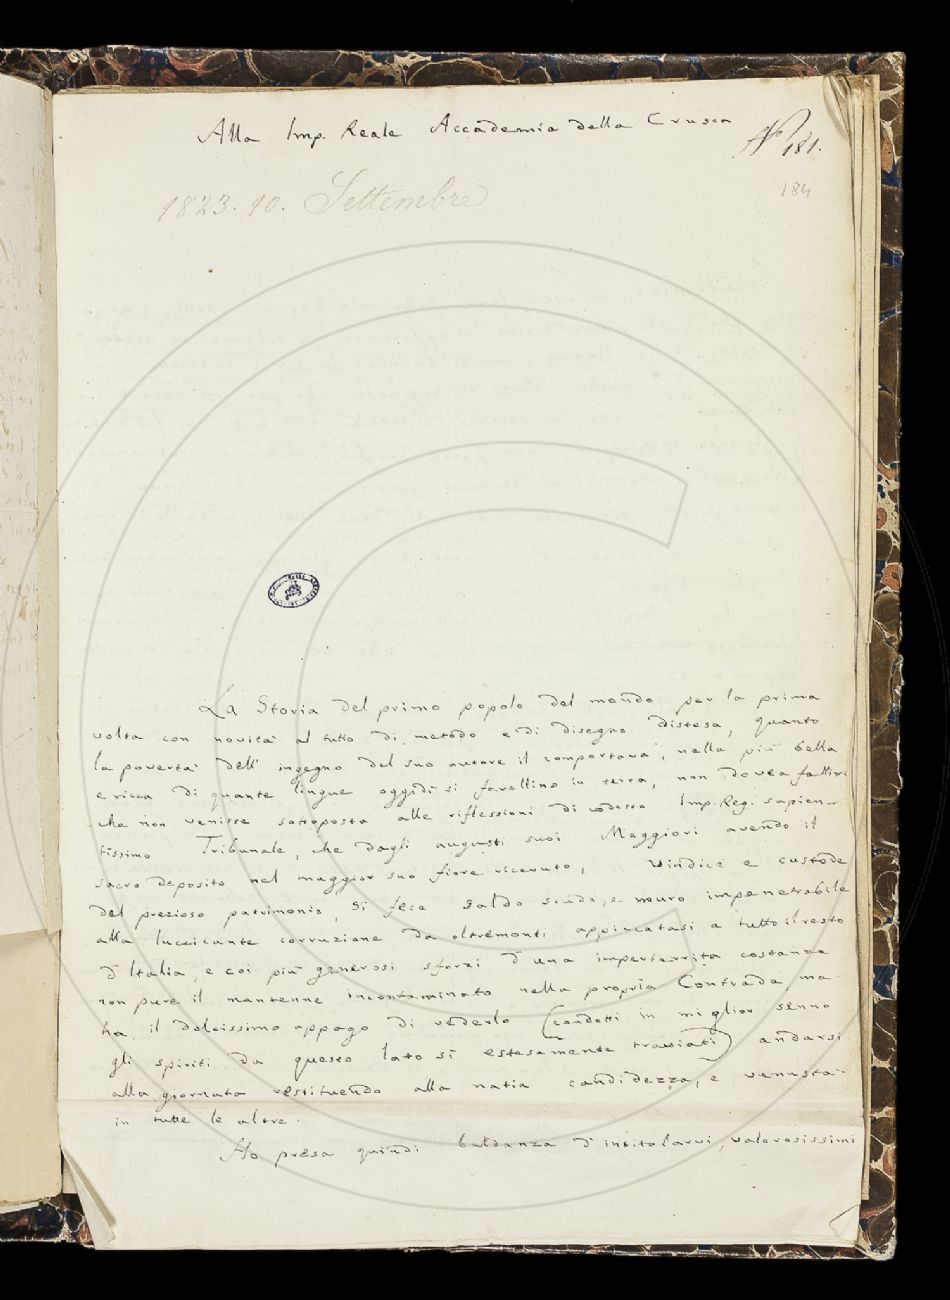 Alla Imp. Reale Accademia della Crusca
N° 181.
184
1823. 10. Settembre
La Storia del primo popolo del mondo per la prima
volta con novità al tutto di metodo e di disegno distesa, quanto
la povertà dell' ingegno del suo autore il comportava, nella più bella
e ricca di quante lingue oggidì si favellino in terra, non dovea fallire
che non venisse sottoposta alle riflessioni di codesto Imp. Reg. sapien-
tissimo Tribunale, che dagli augusti suoi Maggiori avendo il
sacro deposito nel maggior suo fiore ricevuto, vindice e custode
del prezioso patrimonio, si fece saldo scudo, e muro impenetrabile
alla luccicante corruzione da oltremonti appiccatasi a tutto il resto
d'Italia, e coi più generosi sforzi d'una imperterrita costanza
non pure il mantenne incontaminato nella propria Contrada, ma
ha il dolcissimo appago di vederlo (condotti in miglior senno
gli spiriti da questo lato sì estesamente traviati) andarsi
alla giornata restituendo alla natia candidezza, e venustà
in tutte le altre.
Ho presa quindi baldanza d'intitolarvi, valorosissimi